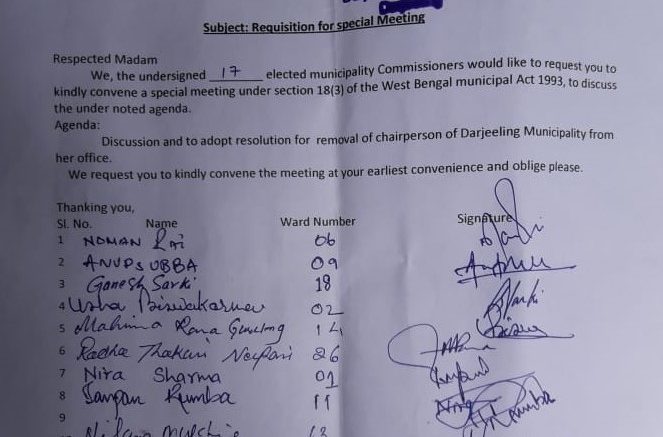 Subject: Requisition for special Meeting
Respected Madam
We, the undersigned 17 elected municipality Commissioners would like to request you to
kindly convene a special meeting under section 18(3) of the West Bengal municipal Act 1993, to discuss
the under noted agenda.
Agenda:
Discussion and to adopt resolution for removal of chairperson of Darjeeling Municipality from
her office.
We request you to kindly convene the meeting at your earliest convenience and oblige please.
Thanking you,
Sl. No. Name Ward Number Signature
1 NOMAN Rai 06
2 ANUP SUBBA 09
3 Ganesh Sarki 18
4 Usha 02
5 Mahima Rana Gurung 14
6 Radha Thakuri Neopani 26
7 Nira Sharma 01
8 Sangan Rumba 11
9